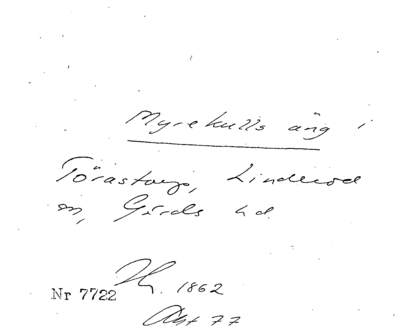 Myrekulls äng i
Törastorp, Linderöd
sn, Gärds hd.
1862
Nr 7722
Akt 77